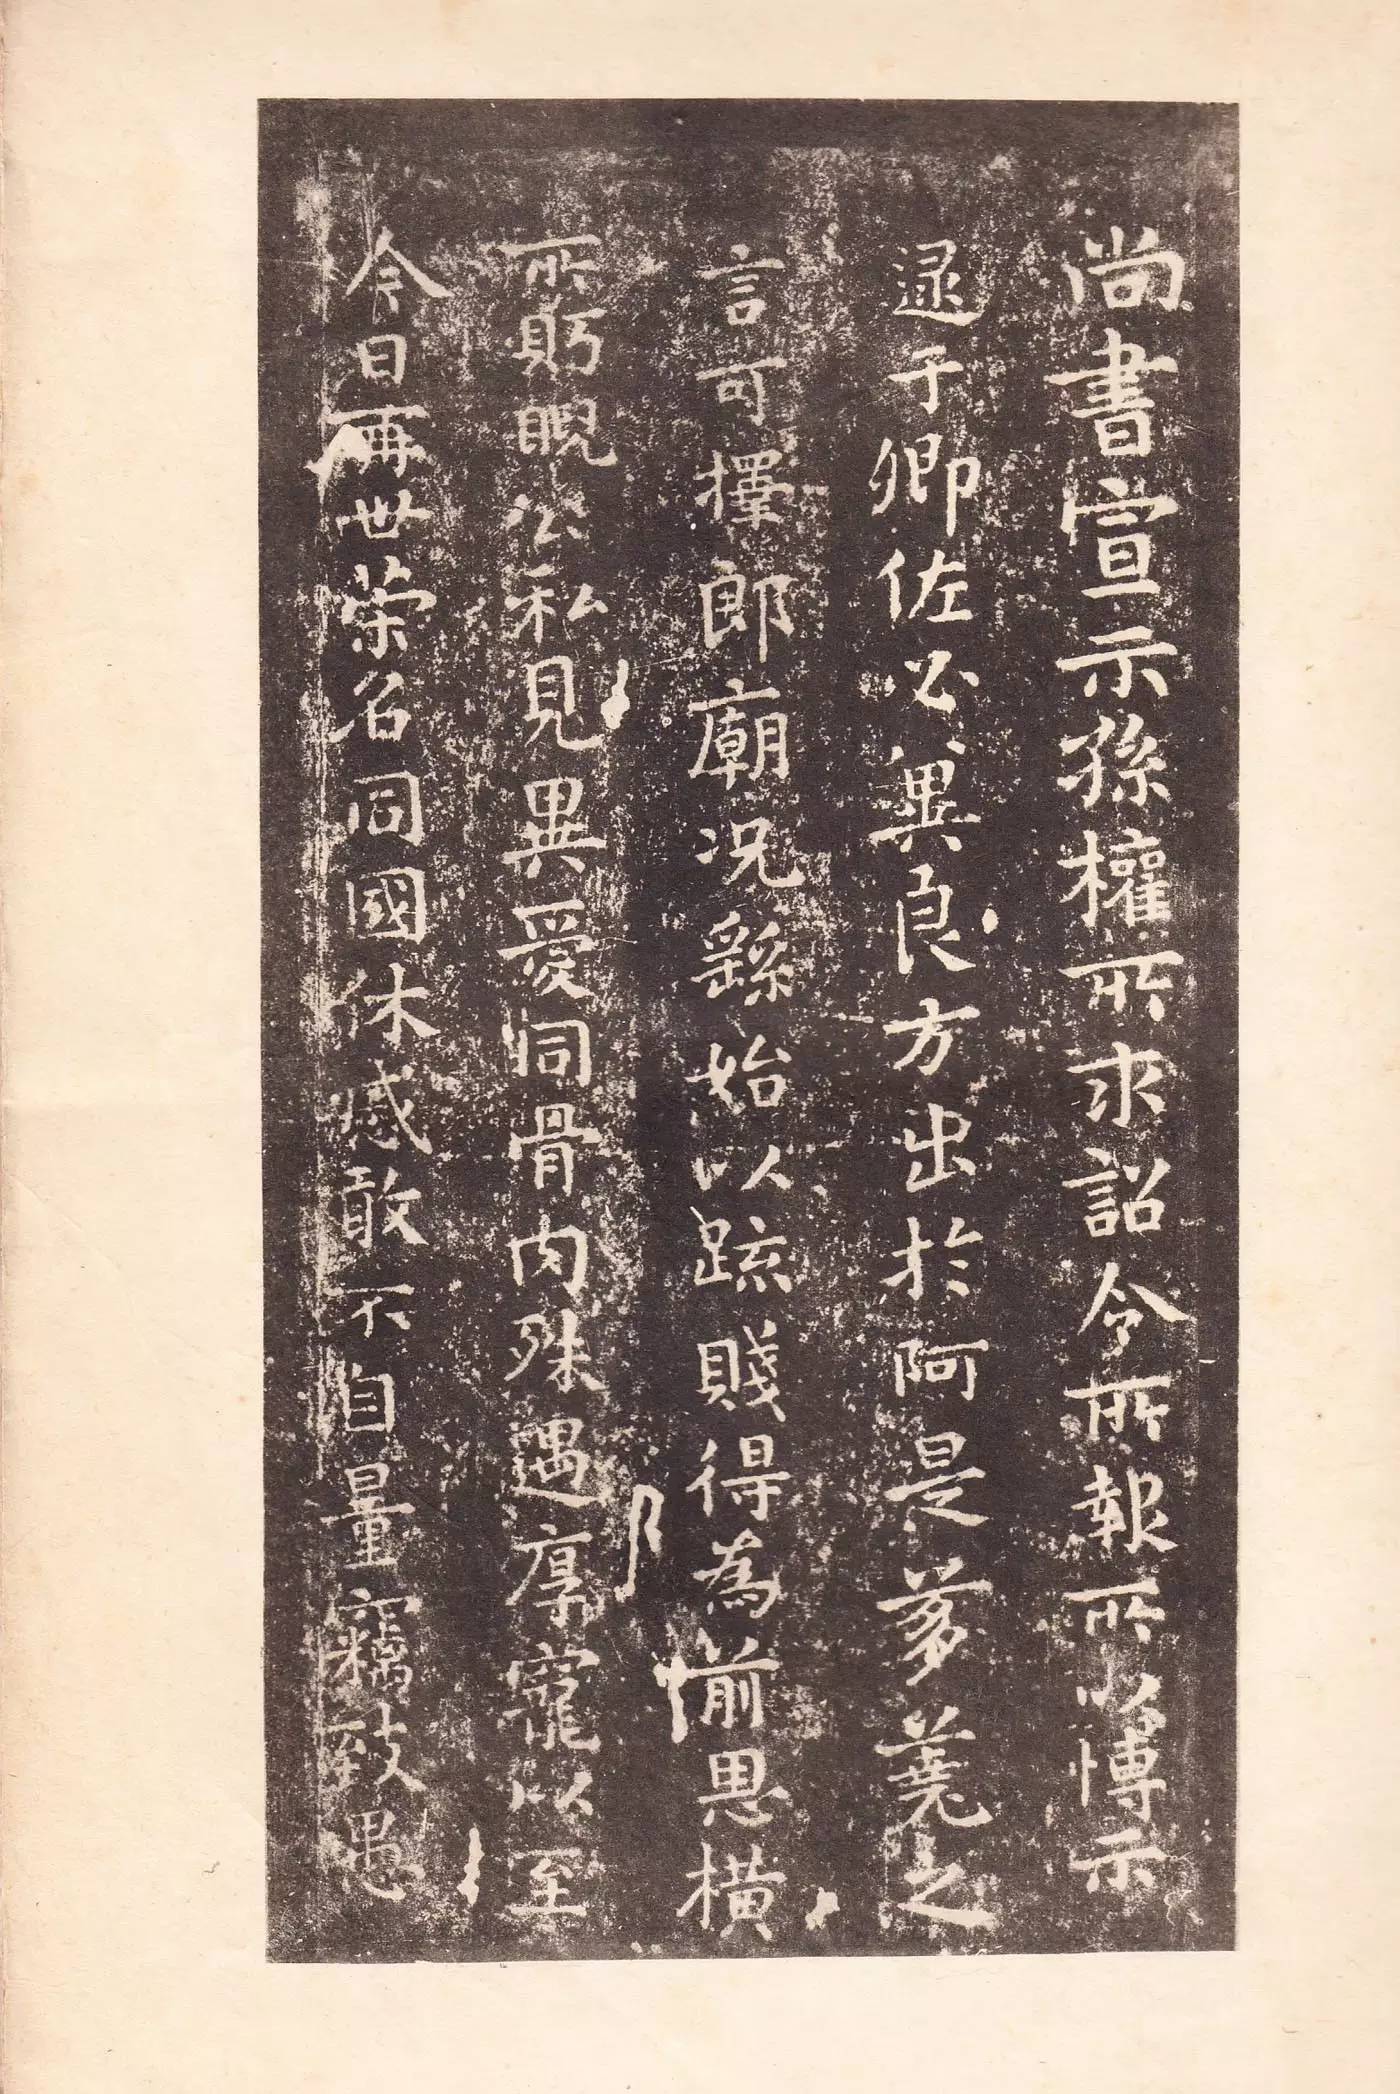 尚書宣示孫權所求詔令所報所以博示
逮于卿佐必冀良方出於阿是芻蕘之
言可擇郎廟况繇始以疏賤得為前恩橫
所貺睨公私見異愛同骨肉殊遇厚寵以至
今日再世榮名同國休慼敢不自量竊致愚